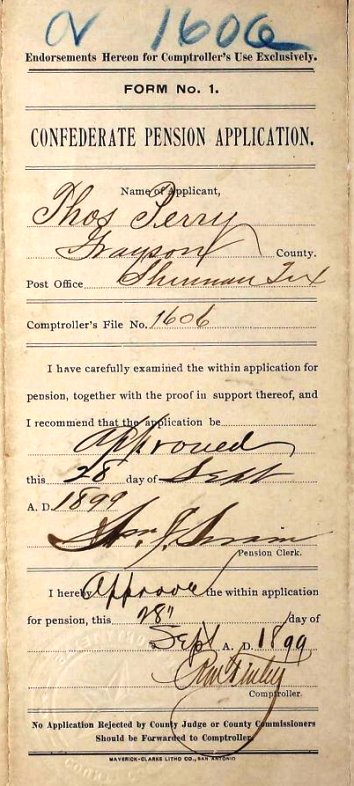 1606
Endorsements Hereon for Comptroller's Use Exclusively.
FORM No. 1.
CONFEDERATE PENSION APPLICATION.
Name of Applicant,
Thos Perry
Grayson County.
Post Office Sherman Tex
Comptroller's File No. 1606
I have carefully examined the within application for
pension, together with the proof in support thereof, and
I recommend that the application be
Approved
this 28 day of Sept
A. D. 1899
Pension Clerk.
I hereby Approve the within application
for pension, this 28" day of
Sept A. D. 1899
Comptroller.
No Application Rejected by County Judge or County Commissioners
Should be Forwarded to Comptroller.
MAVERICK-CLARKE LITHO CO., SAN ANTONIO